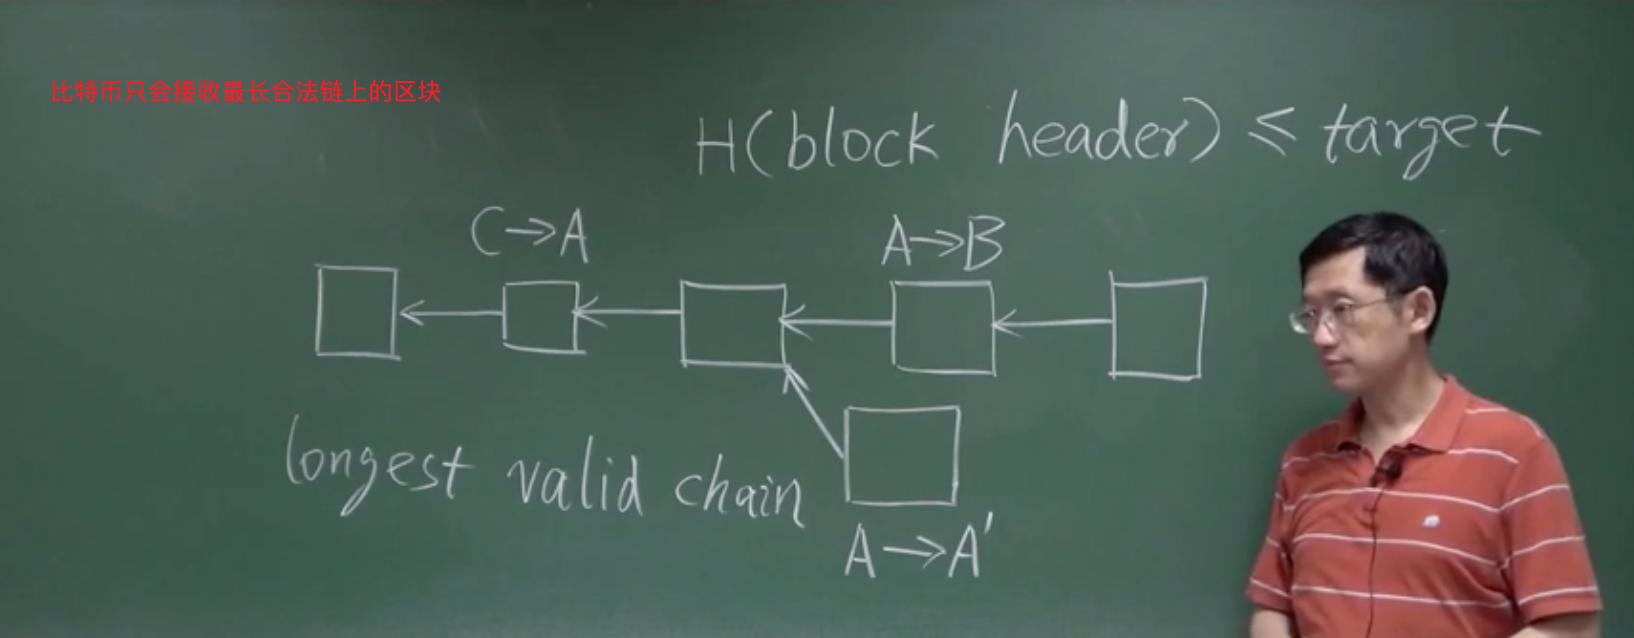 比特币只会接收最长合法链上的区块
H(block header) ≤ target
C→A
A→B
longest valid chain
A→A'